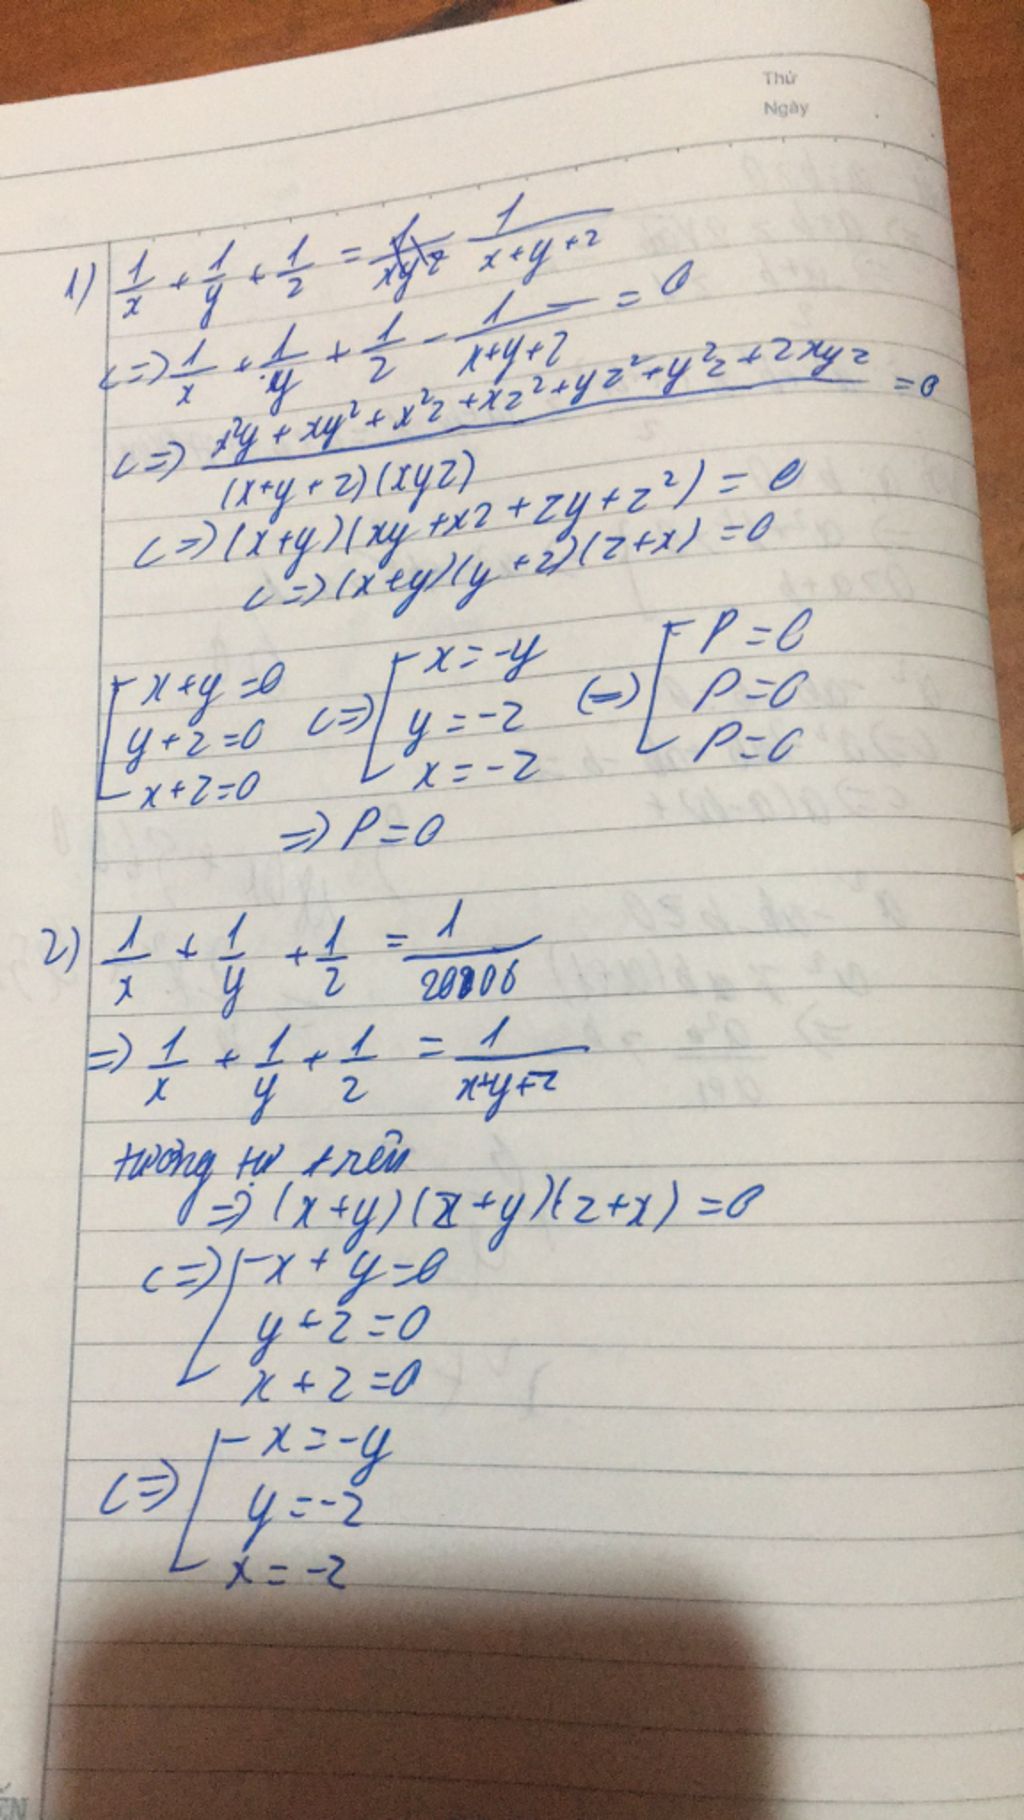 Thứ
Ngày
1) 1/x + 1/y + 1/z = 1/xyz 1/(x+y+z)
<=> 1/x + 1/y + 1/z - 1/(x+y+z) = 0
<=> (x²y + xy² + x²z + xz² + yz² + y²z + 2xyz)/((x+y+z)(xyz)) = 0
<=> (x+y)(xy+xz+zy+z²) = 0
<=> (x+y)(y+z)(z+x) = 0
[ x+y=0 <=> [ x=-y <=> [ P=0
y+z=0 y=-z P=0
x+z=0 x=-z P=0
=> P=0
2) 1/x + 1/y + 1/z = 1/
=> 1/x + 1/y + 1/z = 1/(x+y+z)
tương tự trên
=> (x+y)(z+y)(z+x) = 0
<=> [ x+y=0
y+z=0
x+z=0
<=> [ x=-y
y=-z
x=-z